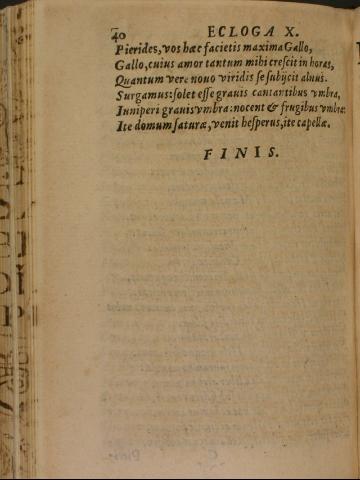 40 ECLOGA X.
Pierides, vos hæc facietis maxima Gallo,
Gallo, cuius amor tantum mihi crescit in horas,
Quantum vere nouo viridis se subijcit alnus.
Surgamus: solet esse grauis cantantibus vmbra,
Iuniperi grauis vmbra: nocent & frugibus vmbræ:
Ite domum saturæ, venit hesperus, ite capellæ.
FINIS.